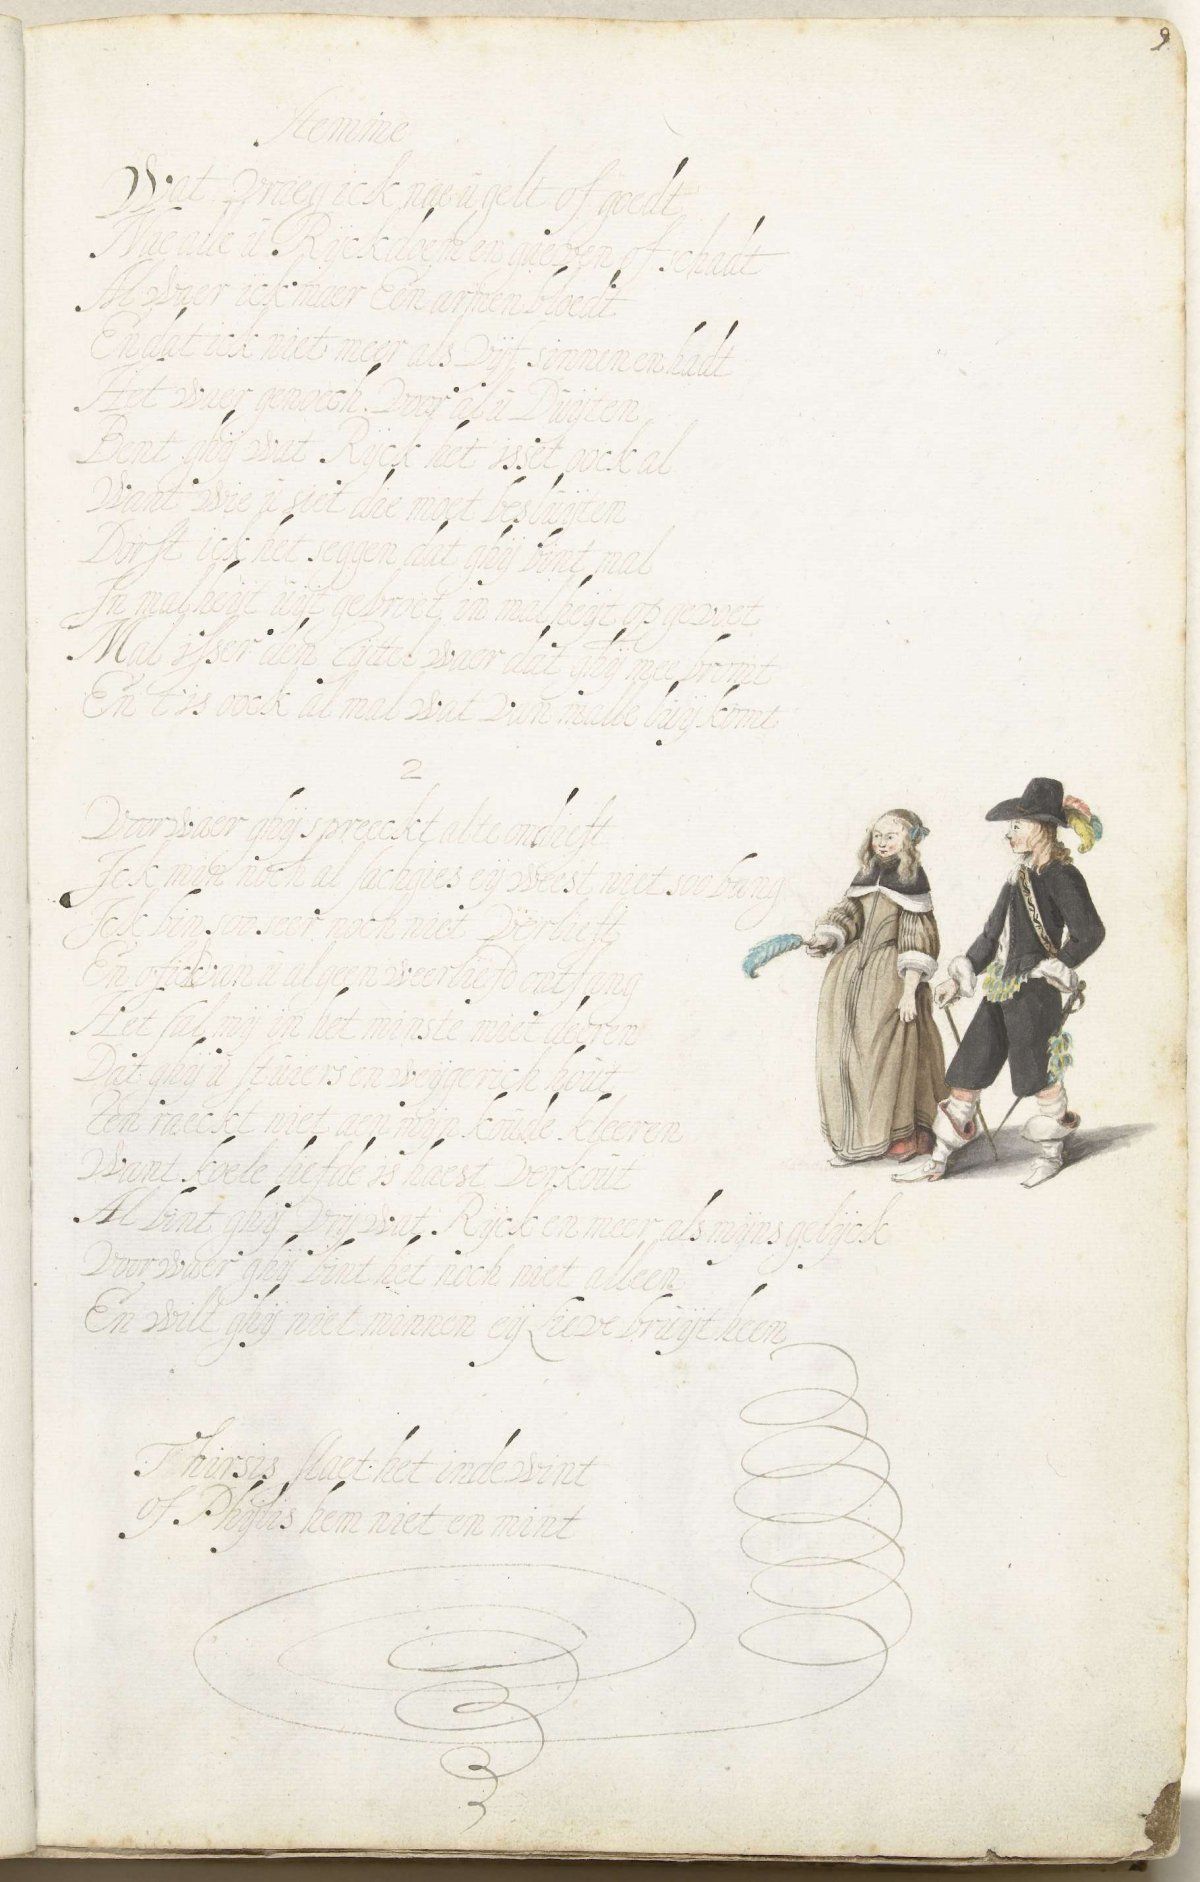 9
Stemme
Wat vraeg ick nae ü gelt of goedt
Nae alle ü Rijckdoem en gaeven of schadt
Al waer ick maer Een armen bloedt
En dat ick niet meer als vijf sinnen en hadt
Het waer genoech voor al ü Duijten
Bent ghij wat Rijck het isset oock al
Want wie ü siet die moet beslüijten
Dorst ick het seggen dat ghij bint mal
In malheijt üijt gebroet in malheijt op gevoet
Mal isser üwen Tyttel waer dat ghij mee bromt
En t is oock al mal wat van malle lüij komt
2
Voorwaer ghij spreeckt al te ondieft
Ick min noch al sachgies eij weest niet soo bang
Ick bin soo seer noch niet verlieft
En of ick van ü al geen weerliefd ontfang
Het sal mij in het minste niet deeren
Dat ghij ü stüiers en weijgerich hout
Ten raeckt niet aen mijn koüde kleeren
Want koele liefde is haest verkoüt
Al bint ghij vrij wat Rijck en meer als mijns gelijck
Voorwaer ghij bint het noch niet alleen
En wilt ghij niet minnen eij Lieve brüijt heen
Thirsis slaet het inde wint
of Phijlis hem niet en mint